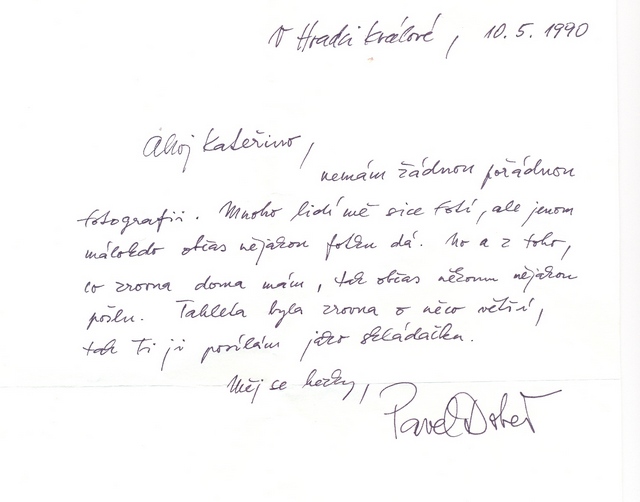 V Hradci Králové, 10. 5. 1990
Ahoj Kateřino,
nemám žádnou pořádnou
fotografii. Mnoho lidí mě sice fotí, ale jenom
málokdo občas nějakou fotku dá. No a z toho,
co zrovna doma mám, tak občas někomu nějakou
pošlu. Tahleta byla zrovna o něco větší,
tak Ti ji posílám jako skládačku.
Měj se hezky,
Pavel Dobeš